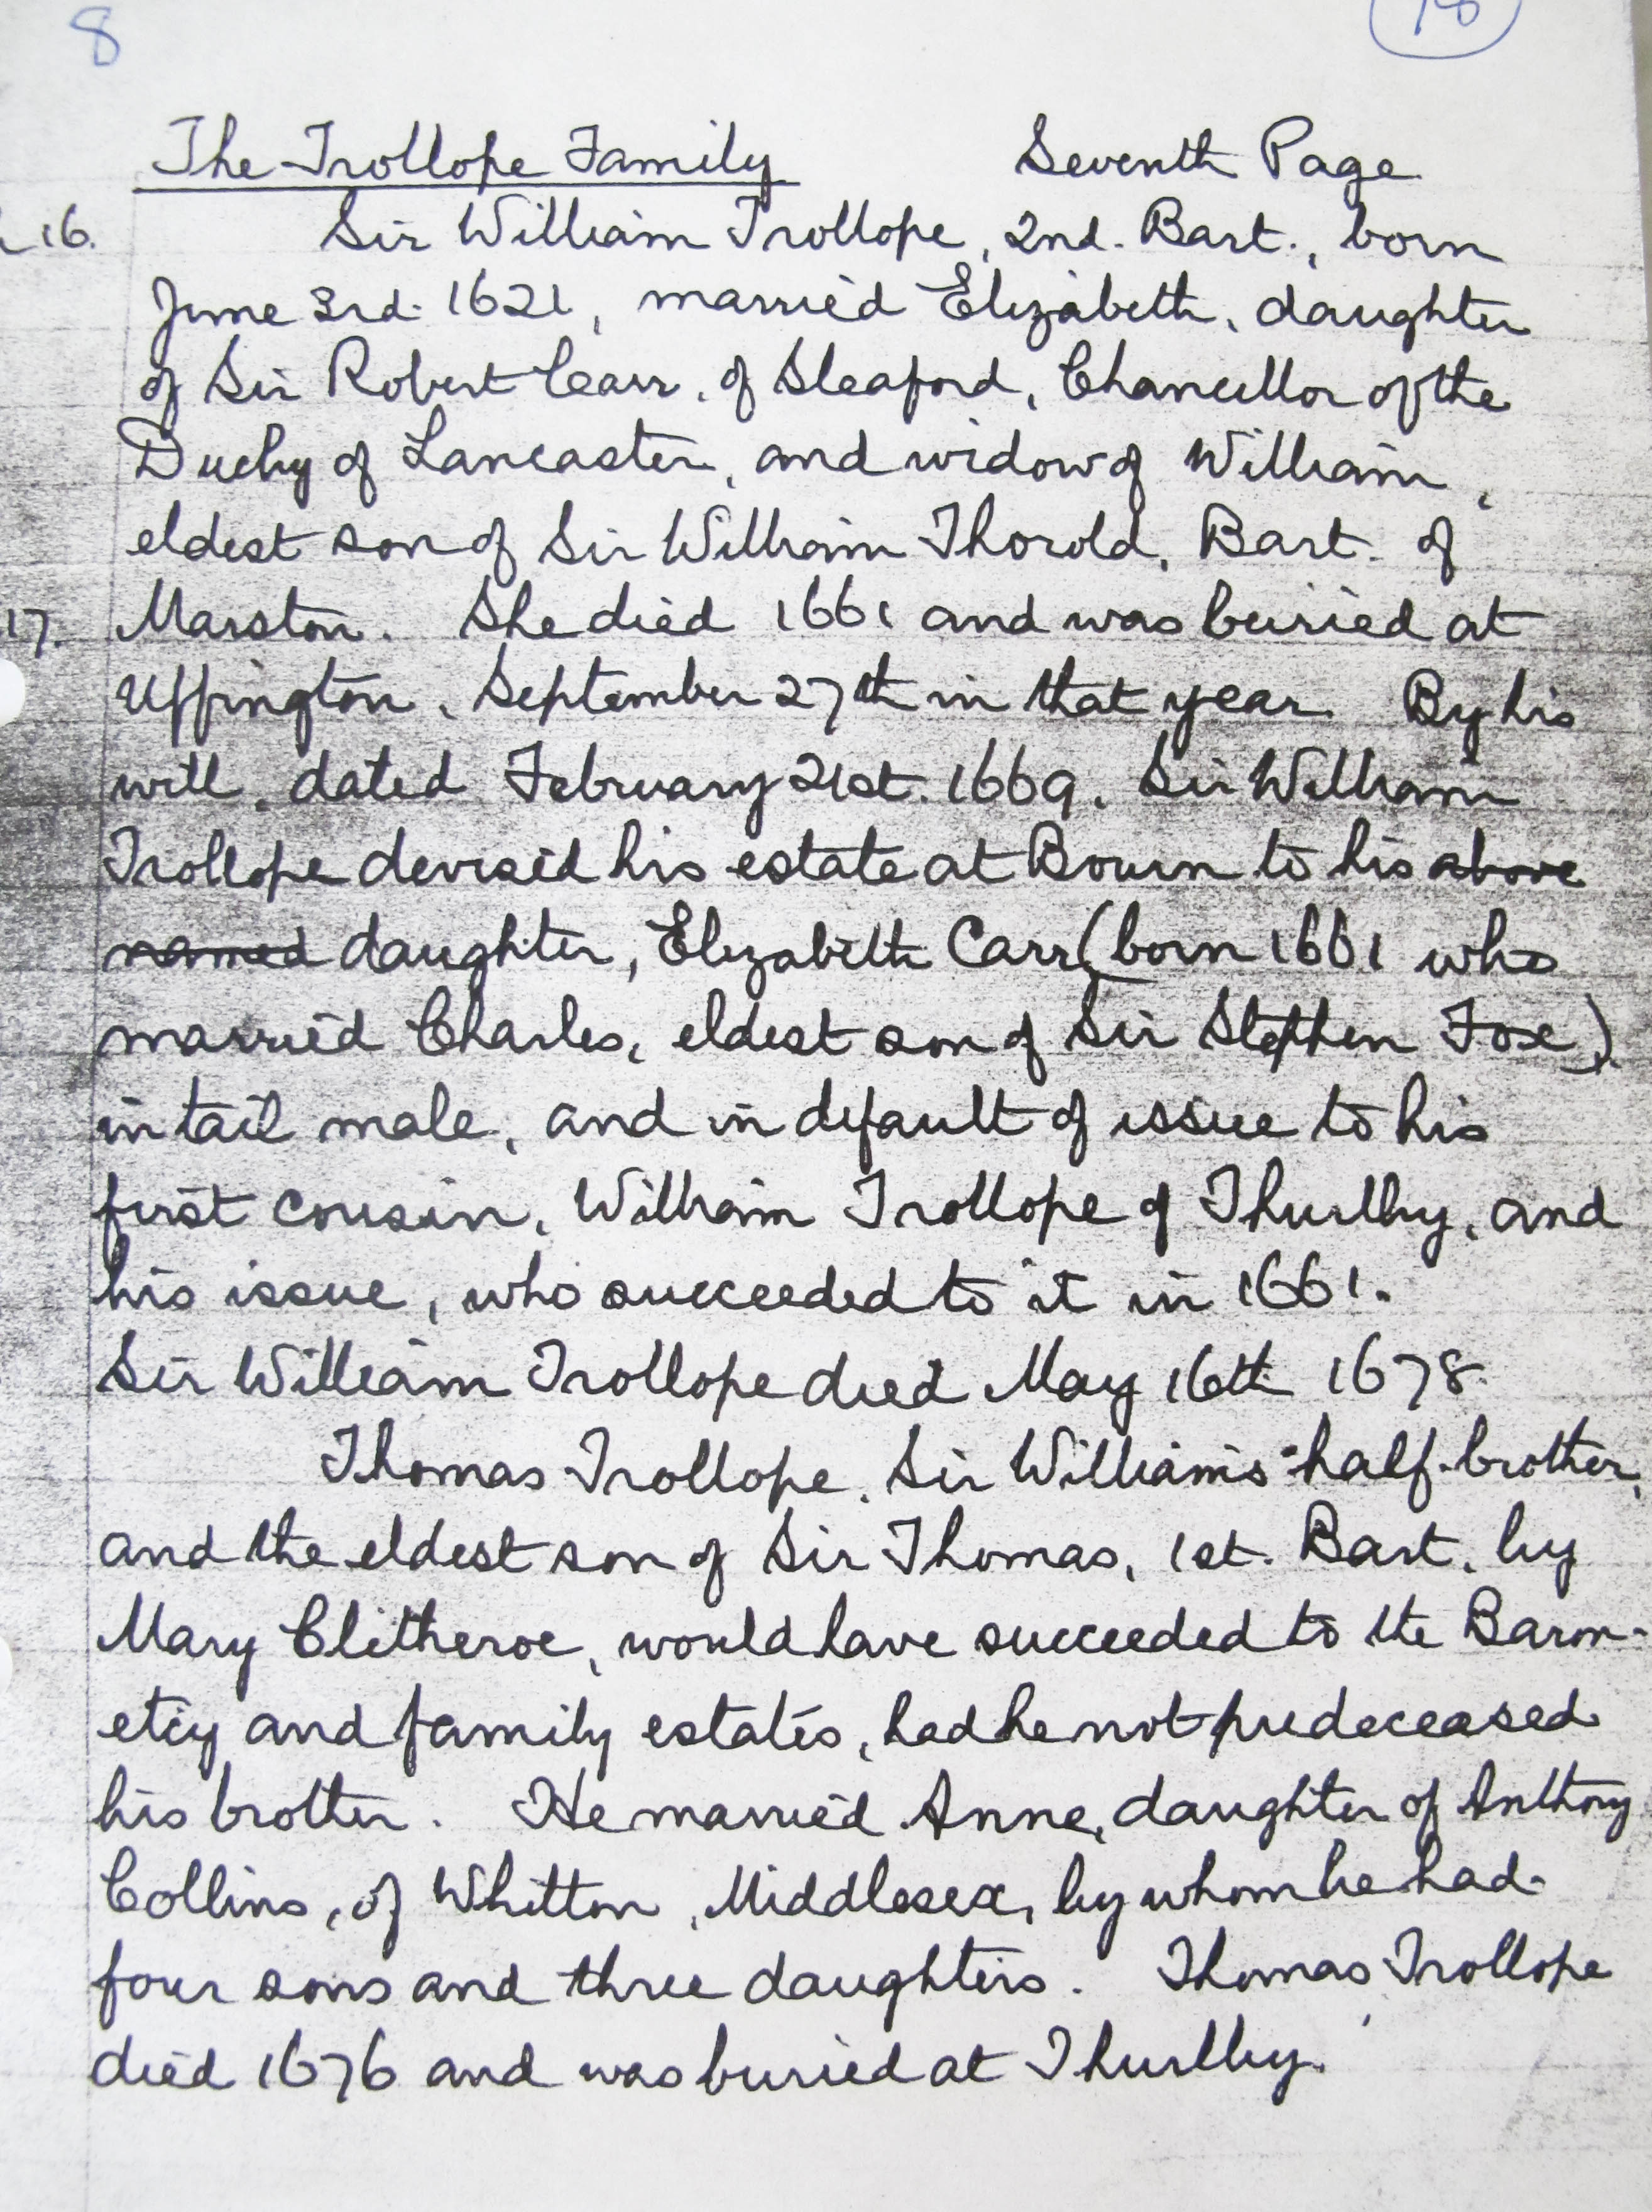 8
18
The Trollope Family Seventh Page
16. Sir William Trollope, 2nd. Bart., born
June 3rd. 1621, married Elizabeth, daughter
of Sir Robert Carr, of Sleaford, Chancellor of the
Duchy of Lancaster, and widow of William,
eldest son of Sir William Thorold, Bart. of
17. Marston. She died 1661 and was buried at
Uffington, September 27th in that year. By his
will, dated February 21st. 1669, Sir William
Trollope devised his estate at Bourn to his above
named daughter, Elizabeth Carr (born 1661 who
married Charles, eldest son of Sir Stephen Fox)
in tail male, and in default of issue to his
first cousin, William Trollope of Thurlby, and
his issue, who succeeded to it in 1661.
Sir William Trollope died May 16th 1678.
Thomas Trollope, Sir William's half-brother,
and the eldest son of Sir Thomas, 1st. Bart. by
Mary Clitheroe, would have succeeded to the Baron-
etcy and family estates, had he not predeceased
his brother. He married Anne, daughter of Anthony
Collins, of Whitton, Middlesex, by whom he had
four sons and three daughters. Thomas Trollope
died 1676 and was buried at Thurlby.